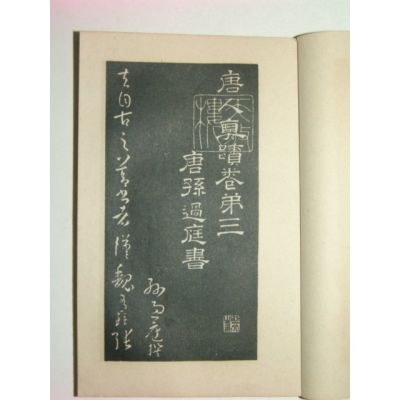 唐人真蹟卷第三
唐孫過庭書
孫過庭撰
夫自古之善書者漢魏有鍾張